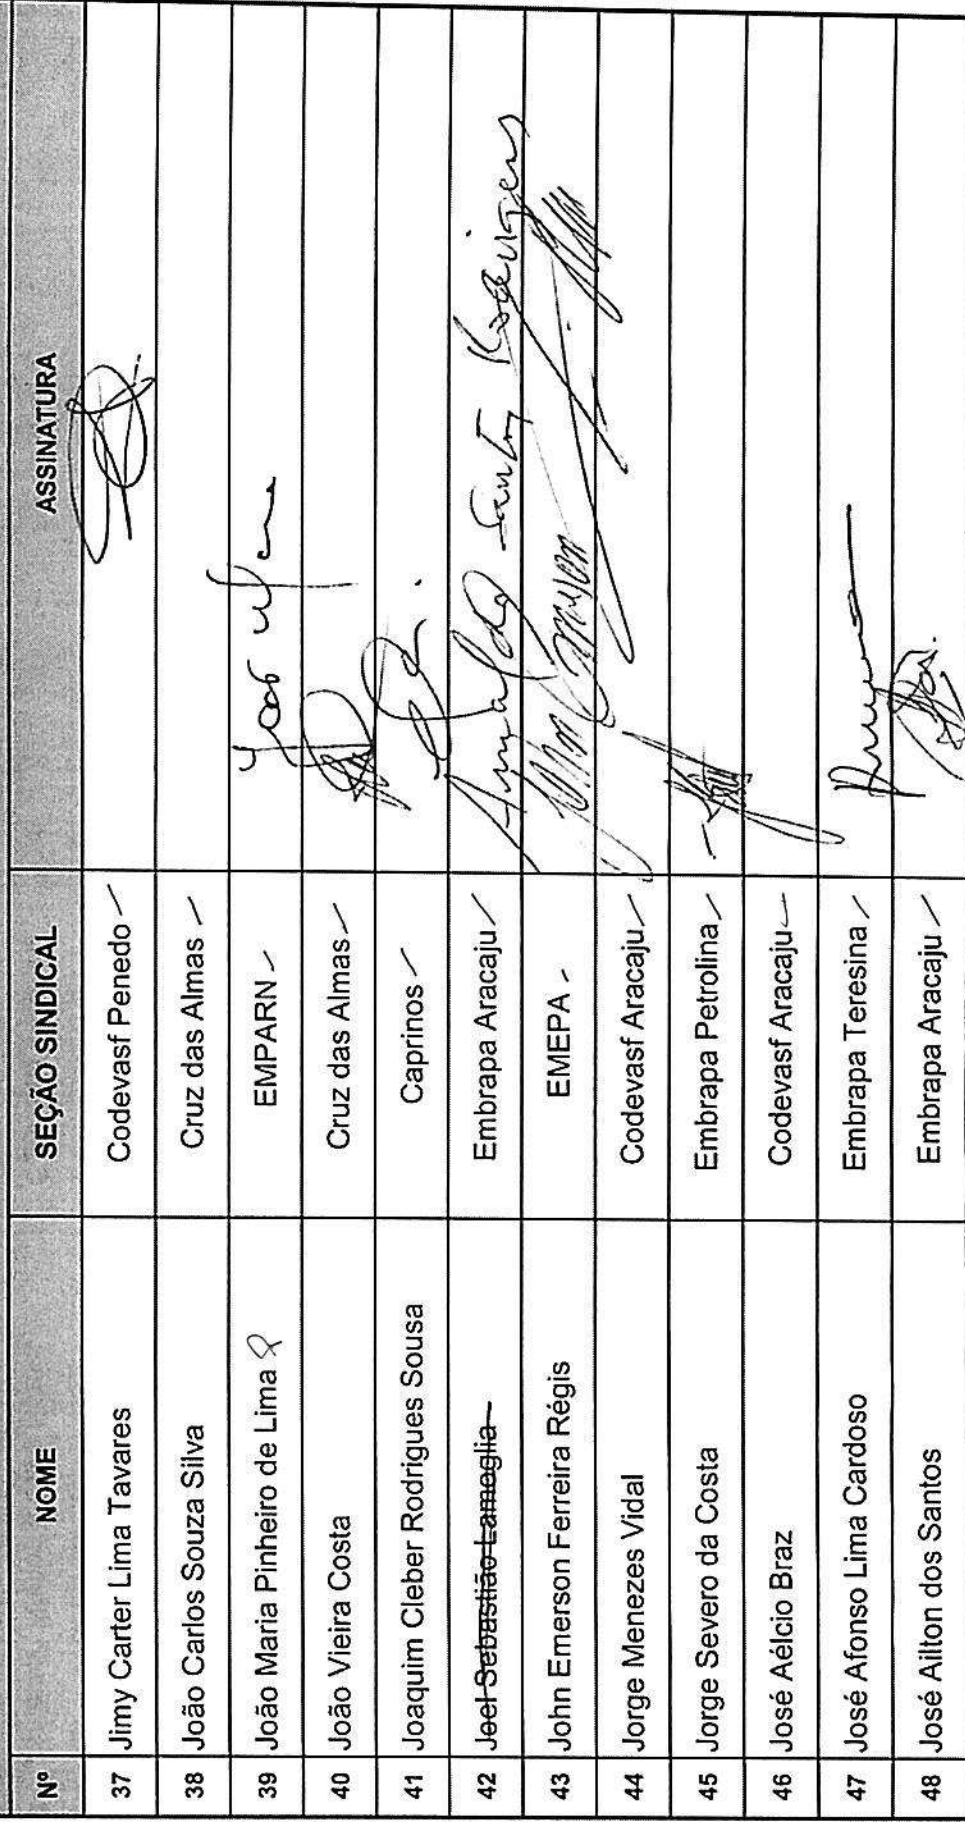 Nº NOME SEÇÃO SINDICAL ASSINATURA
37 Jimy Carter Lima Tavares Codevasf Penedo
38 João Carlos Souza Silva Cruz das Almas
39 João Maria Pinheiro de Lima EMPARN
40 João Vieira Costa Cruz das Almas
41 Joaquim Cleber Rodrigues Sousa Caprinos
42 Joel Sebastião Lameglia Embrapa Aracaju Arnaldo Santos Rodrigues
43 John Emerson Ferreira Régis EMEPA
44 Jorge Menezes Vidal Codevasf Aracaju
45 Jorge Severo da Costa Embrapa Petrolina
46 José Aélcio Braz Codevasf Aracaju
47 José Afonso Lima Cardoso Embrapa Teresina
48 José Ailton dos Santos Embrapa Aracaju